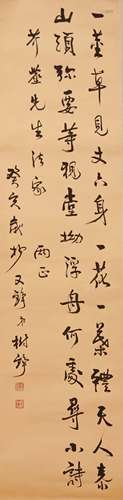 一莖草見丈六身一花一葉體天人泰
山頭孫要等現壺坳浮舟何處尋小詩
芥莖先生法家 兩正
癸亥歲抄又錚弟樹錚